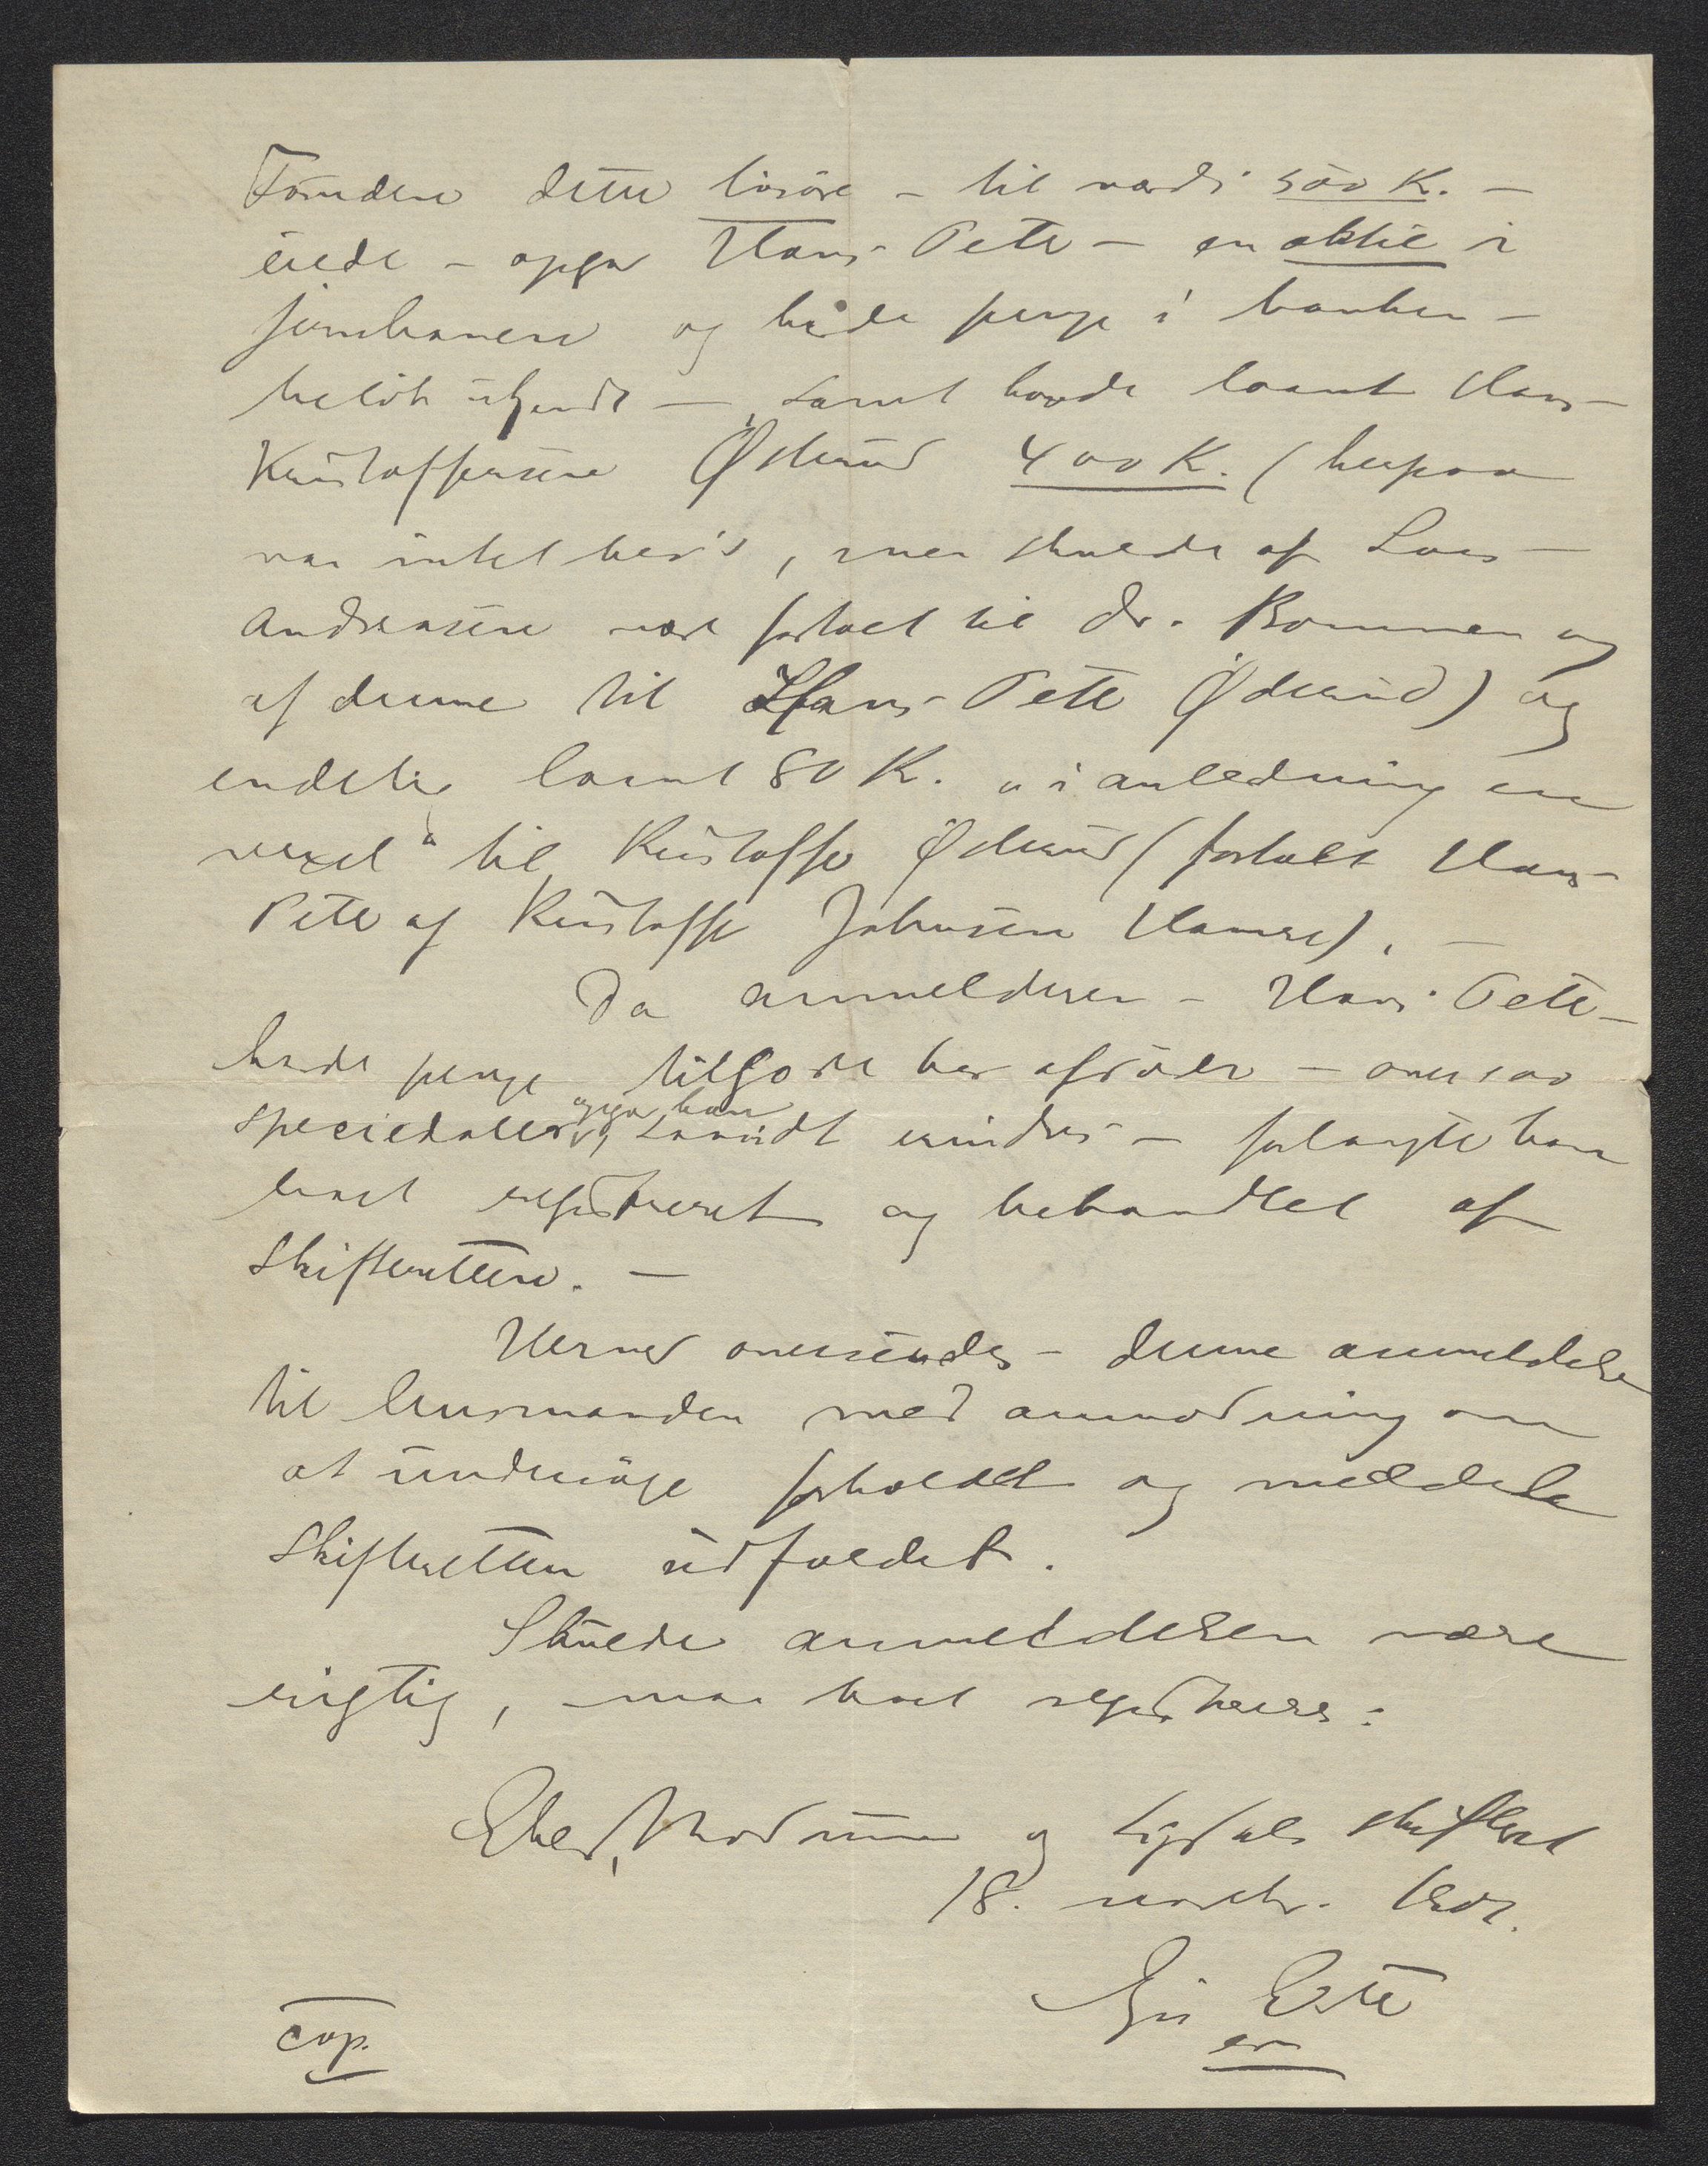 Foruden dette lösöre - til værdi 500 K. -
eiede - opga Hans Petter - en aktie i
jernbanen og havde penge i banken -
belöb ukjendt - samt havde laant Hans
Kristoffersen Ødesrud 400 K. (herpaa
var intet bevis, men skulde af Lars
Andreassen være fortalt til dr. Bommen og
af denne til Hans Petter Ødesrud) og
endelig laant 80 K. "i anledning en
vexel" til Kristoffer Ødesrud (fortalt Hans
Petter af Kristoffer Johnsen Hamre). -
Da anmelderen - Hans Petter -
havde penge tilgode hos afdöde - over 100
speciedaler, opga han, saavidt erindres - forlangte han
boet registreret og behandlet af
skifteretten. -
Herved oversendes - denne anmeldelse
til lensmanden med anmodning om
at undersöge forholdet og meddele
skifteretten udfaldet.
Skulde anmeldelsen være
rigtig, maa boet registreres:
Eker, Modum og Sigdals skifteret
18. novbr.
cop.